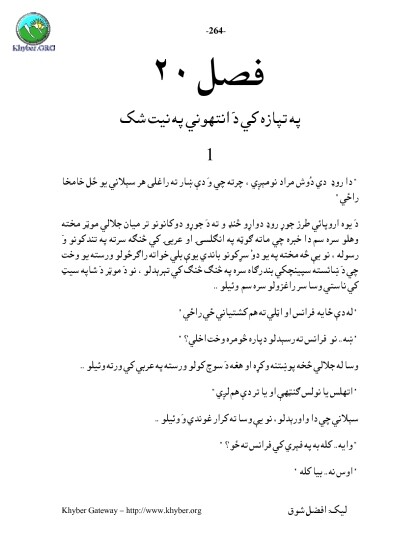 -264-
Khyber.ORG
فصل ۲۰
په تپازه کي دَ انتهوني په نيت شک
1
" دا روډ دي دُوش مراد نوميږي ، چرته چي وَ دې ښار ته راغلی هر سېلاني يو ځل خامخا
راځي "
دَ يوه اروپائي طرز جوړ روډ دواړو څنډ و ته دَ جوړو دوکانونو تر ميان جلالي موټر مخته
وهلو سره سم دا خبره چي ماته ګوټه په انګلسۍ او عربۍ کي څنګه سرته په تندکونو وَ
رسوله ، نو يې څه مخته په يو دوْ سړکونو باندي يوې بلي خواته راګرځولو ورسته يو وخت
چي دَ ښائسته سيينچکي بندرګاه سره په څنګ څنګ کي تېرېدلو ، نو دَ موټر دَ شا په سيټ
کي ناستي وسا سر راغزولو سره سم وئيلو ..
" له دې ځايه فرانس او اټلي ته هم کشتياني ځي راځي "
" ښه.. نو فرانس ته رسېدلو دپاره څومره وخت اخلي؟ "
وسا له جلالي څخه پوښتنه وکړه او هغه دَ سوچ کولو ورسته په عربي کي ورته وئيلو ..
" اتهلس يا نولس ګنټهې او يا تر دې هم لږي "
سېلاني چي دا واورېدلو ، نو يې وسا ته کرار غوندي وَ وئيلو ..
" وايه.. کله به په فېرۍ کي فرانس ته ځو؟ "
" اوس نه.. بيا کله "
Khyber Gateway – http://www.khyber.org
ليک: افضل شوق